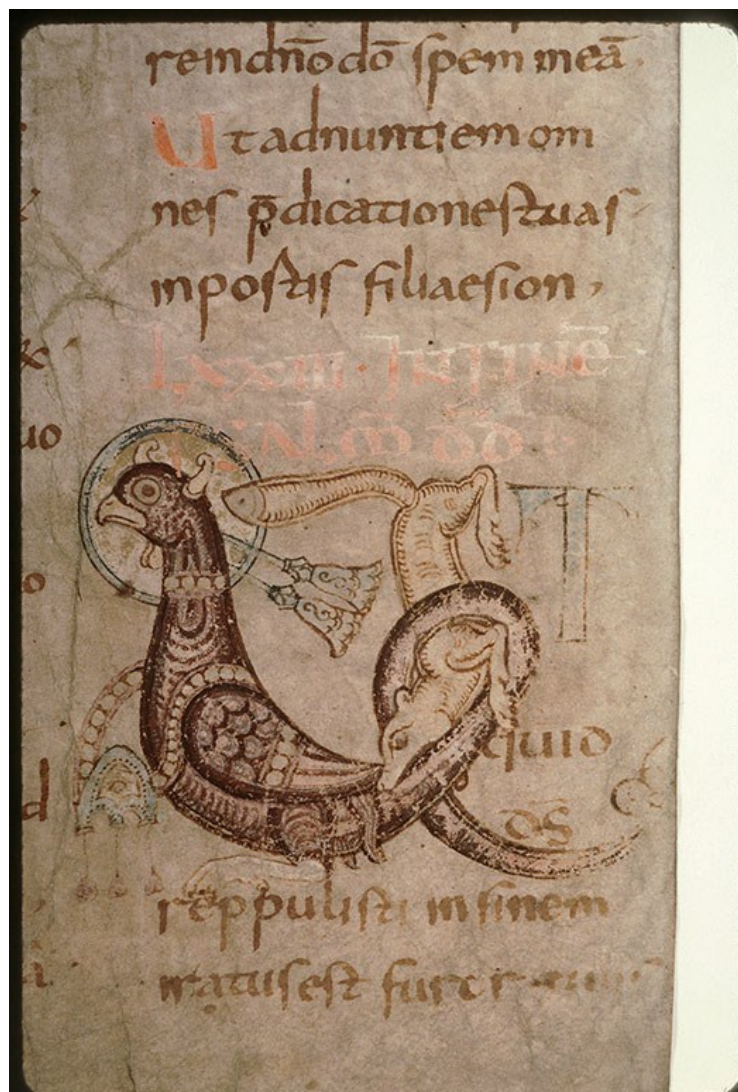 re in dn̄o dō spem meā
Ut adnuntiem om
nes p̄dicationes tuas
in portis filiae sion,
LXXIII
UT
quid
ds̄
reppulisti in finem
iratus est furor tuus